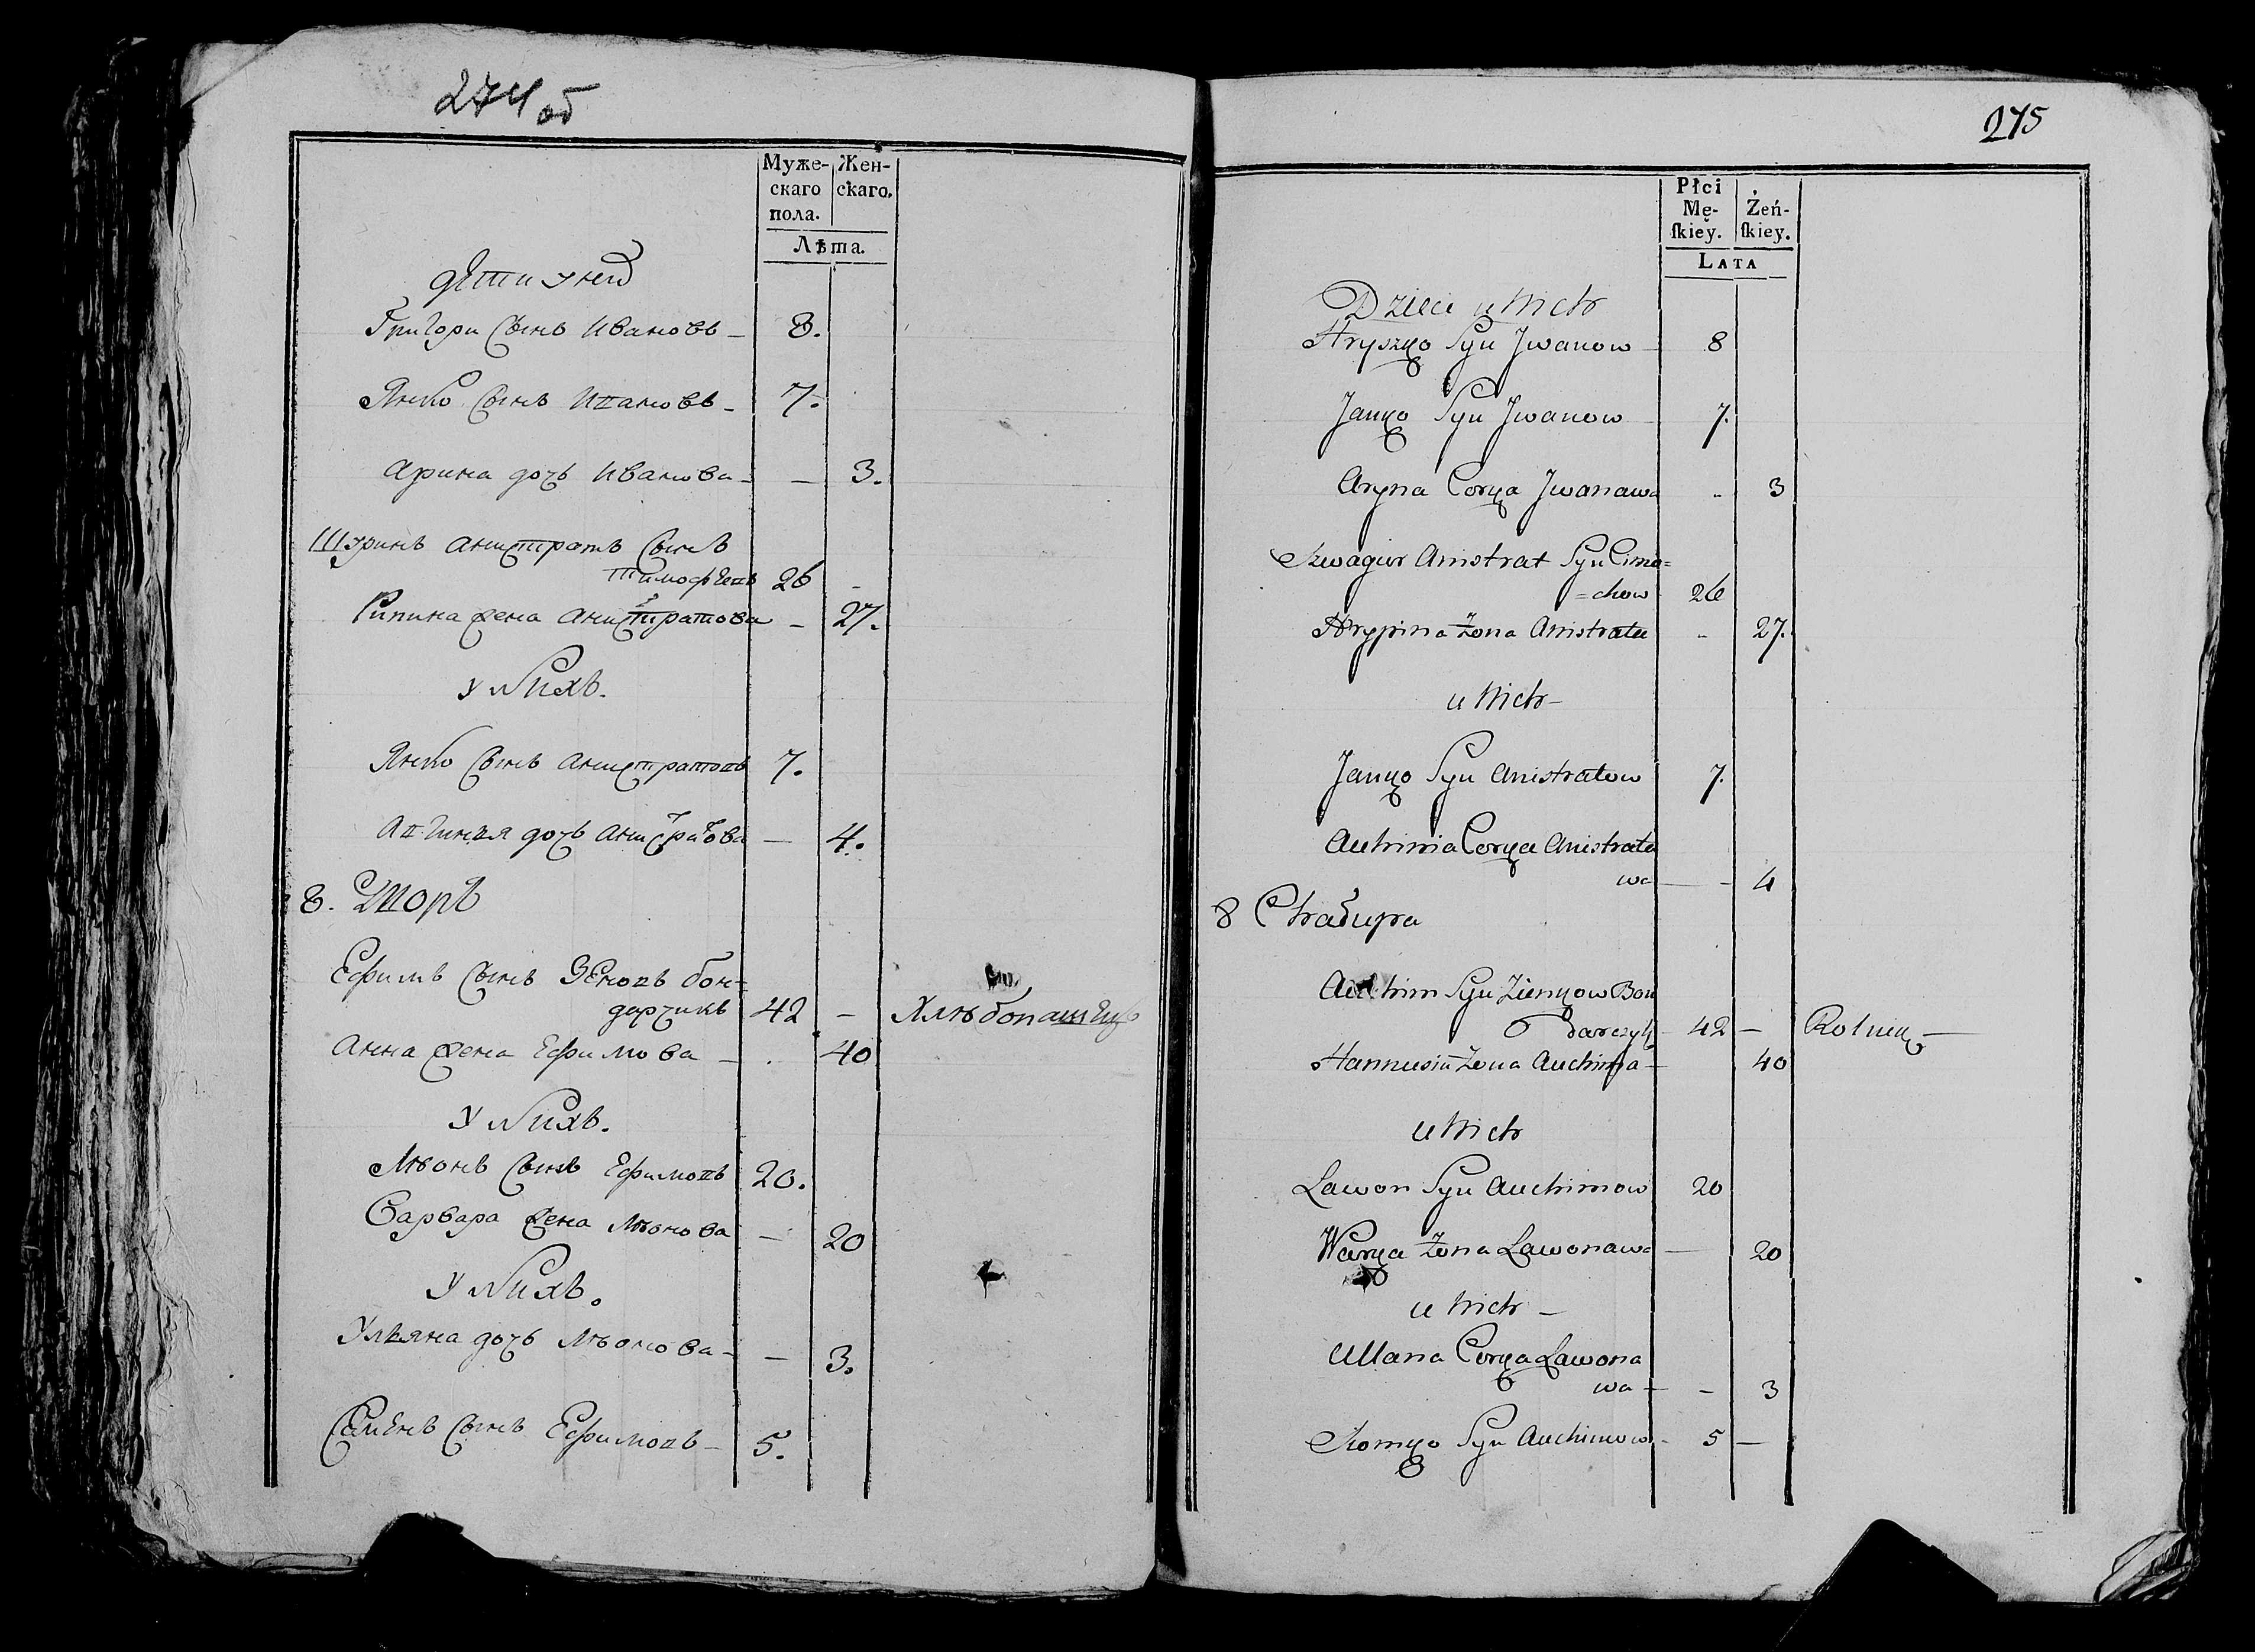 274 об
Муже- Жен-
скаго скаго.
пола.
Лѣта.
дети у нихъ
Григори сынъ Ивановъ – 8.
Янко сынъ Ивановъ – 7.
Арина дочь Иванова – – 3.
Шуринъ Анистратъ сынъ
Тимофеевъ 26 –
Рипина жена Анистратова – 27.
у нихъ.
Янко сынъ Анистратовъ 7.
Авгинья дочь Анистратова – 4.
8. Дворъ
Ефимъ сынъ Зеновъ бон-
дарчикъ 42 – Хлѣбопашецъ
Анна жена Ефимова – . 40
у нихъ.
Лѣонъ сынъ Ефимовъ 20.
Варвара жена Лѣонова – 20
у нихъ.
Ульяна дочь Лѣонова – – 3.
Семенъ сынъ Ефимовъ – 5.
275
Płci
Mę- Żeń-
skiey. skiey.
LATA
Dzieci u Nich
Hryszko Syn Jwanow – 8
Janko Syn Jwanow – 7.
Aryna Corka Jwanawa – 3
Szwagier Anistrat Syn Cimo=
=chow 26
Hrypina Żona Anistrata – 27.
u Nich –
Janko Syn Anistratow 7.
Auhinia Corka Anistrata
wa – – 4
8 Chałupa
Auchim Syn Zienkow Bon
darczyk – 42 – Rolnik –
Hannusia Żona Auchima – 40
u Nich
Lawon Syn Auchimow 20
Warka Żona Lawonawa – 20
u Nich –
Ullana Corka Lawona
wa – – 3
Siomko Syn Auchimow – 5 –